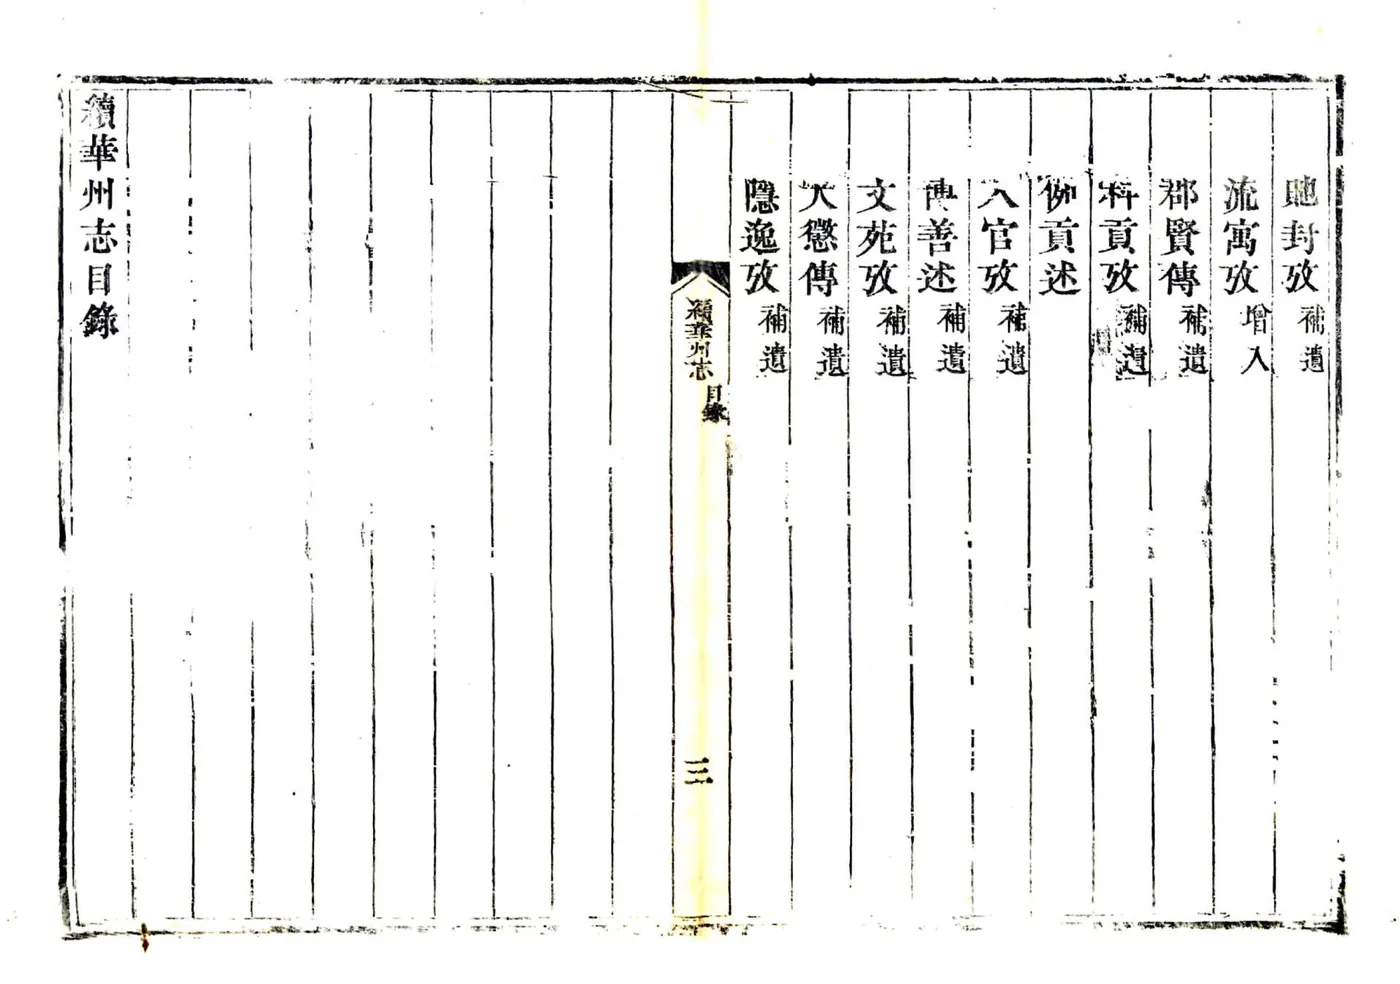 貤封攷 補遺
流寓攷 增入
郡賢傳 補遺
科貢攷 補遺
例貢述
入官攷 補遺
善述 補遺
文苑攷 補遺
大懲傳 補遺
隱逸攷 補遺
續華州志 目錄
三
續華州志目錄